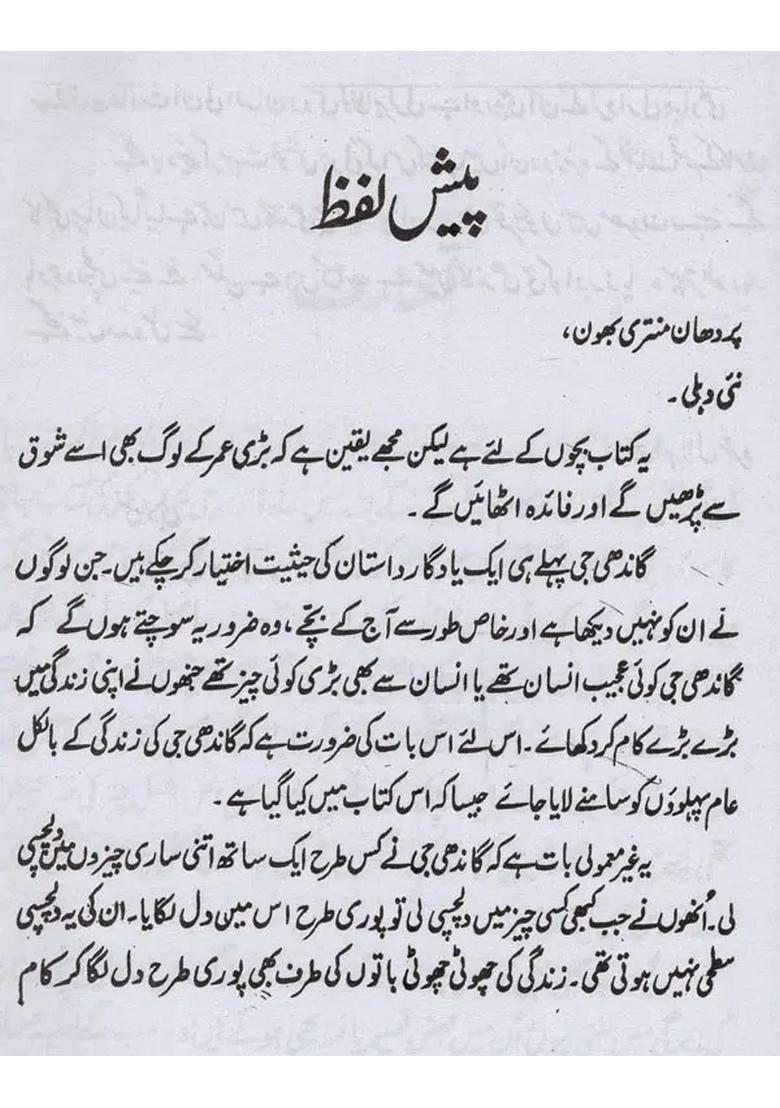 پیش لفظ
پردھان منتری بھون،
نئی دہلی۔
یہ کتاب بچوں کے لئے ہے لیکن مجھے یقین ہے کہ بڑی عمر کے لوگ بھی اسے شوق
سے پڑھیں گے اور فائدہ اٹھائیں گے۔
گاندھی جی پہلے ہی ایک یادگار داستان کی حیثیت اختیار کر چکے ہیں۔ جن لوگوں
نے ان کو نہیں دیکھا ہے اور خاص طور سے آج کے بچے، وہ ضرور یہ سوچتے ہوں گے کہ
گاندھی جی کوئی عجیب انسان تھے یا انسان سے بھی بڑی کوئی چیز تھے جنھوں نے اپنی زندگی میں
بڑے بڑے کام کر دکھائے۔ اس لئے اس بات کی ضرورت ہے کہ گاندھی جی کی زندگی کے بالکل
عام پہلوؤں کو سامنے لایا جائے جیسا کہ اس کتاب میں کیا گیا ہے۔
یہ غیر معمولی بات ہے کہ گاندھی جی نے کس طرح ایک ساتھ اتنی ساری چیزوں میں دلچسپی
لی۔ اُنھوں نے جب کبھی کسی چیز میں دلچسپی لی تو پوری طرح اس مین دل لگایا۔ ان کی یہ دلچسپی
سطحی نہیں ہوتی تھی۔ زندگی کی چھوٹی چھوٹی باتوں کی طرف بھی پوری طرح دل لگا کر کام